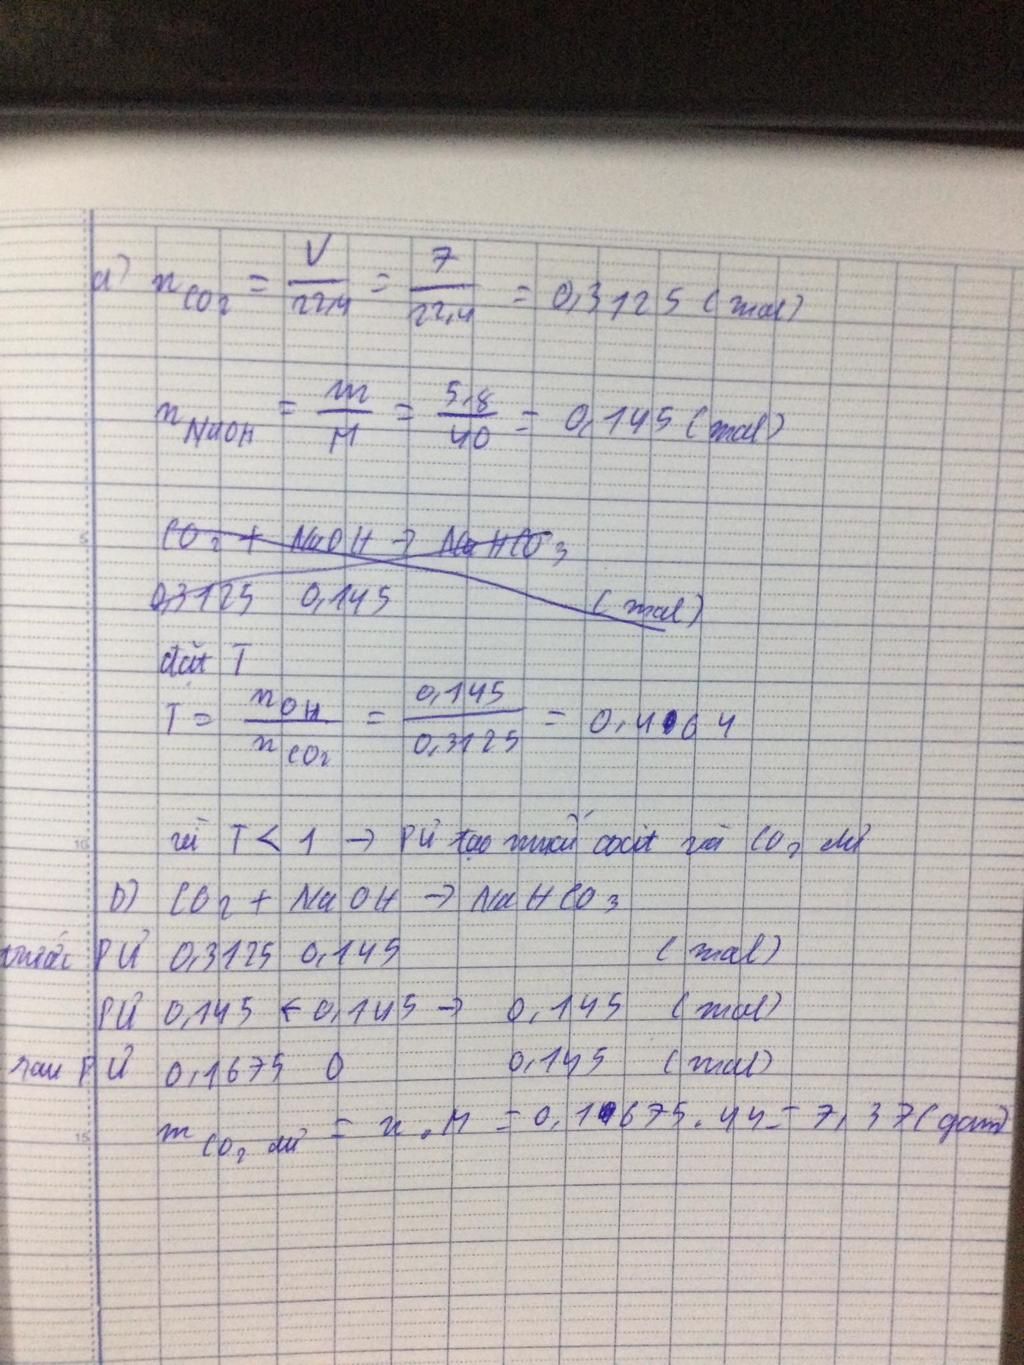 a) nCO2 = V/22,4 = 7/22,4 = 0,3125 (mol)
nNaOH = m/M = 5,8/40 = 0,145 (mol)
CO2 + NaOH → NaHCO3
0,3125 0,145 (mol)
đặt T
T = nOH/nCO2 = 0,145/0,3125 = 0,464
vì T < 1 → PƯ tạo muối axit và CO2 dư
b) CO2 + NaOH → NaHCO3
trước PƯ 0,3125 0,145 (mol)
PƯ 0,145 ← 0,145 → 0,145 (mol)
sau PƯ 0,1675 0 0,145 (mol)
mCO2 dư = n . M = 0,1675 . 44 = 7,37 (gam)